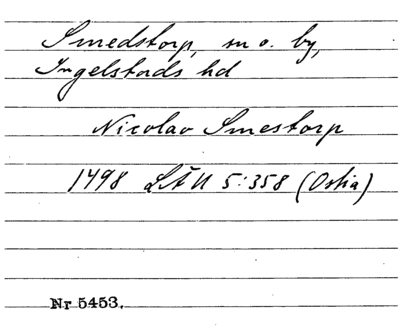 Smedstorp, sn o. by,
Ingelstads hd
Nicolao Smestorp
1498 LÄU 5:358 (Ostia)
Nr 5453.